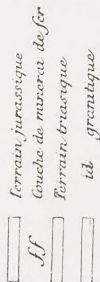 Terrain jurassique
ff Couche de minerai de fer
Terrain triasique
id granitique